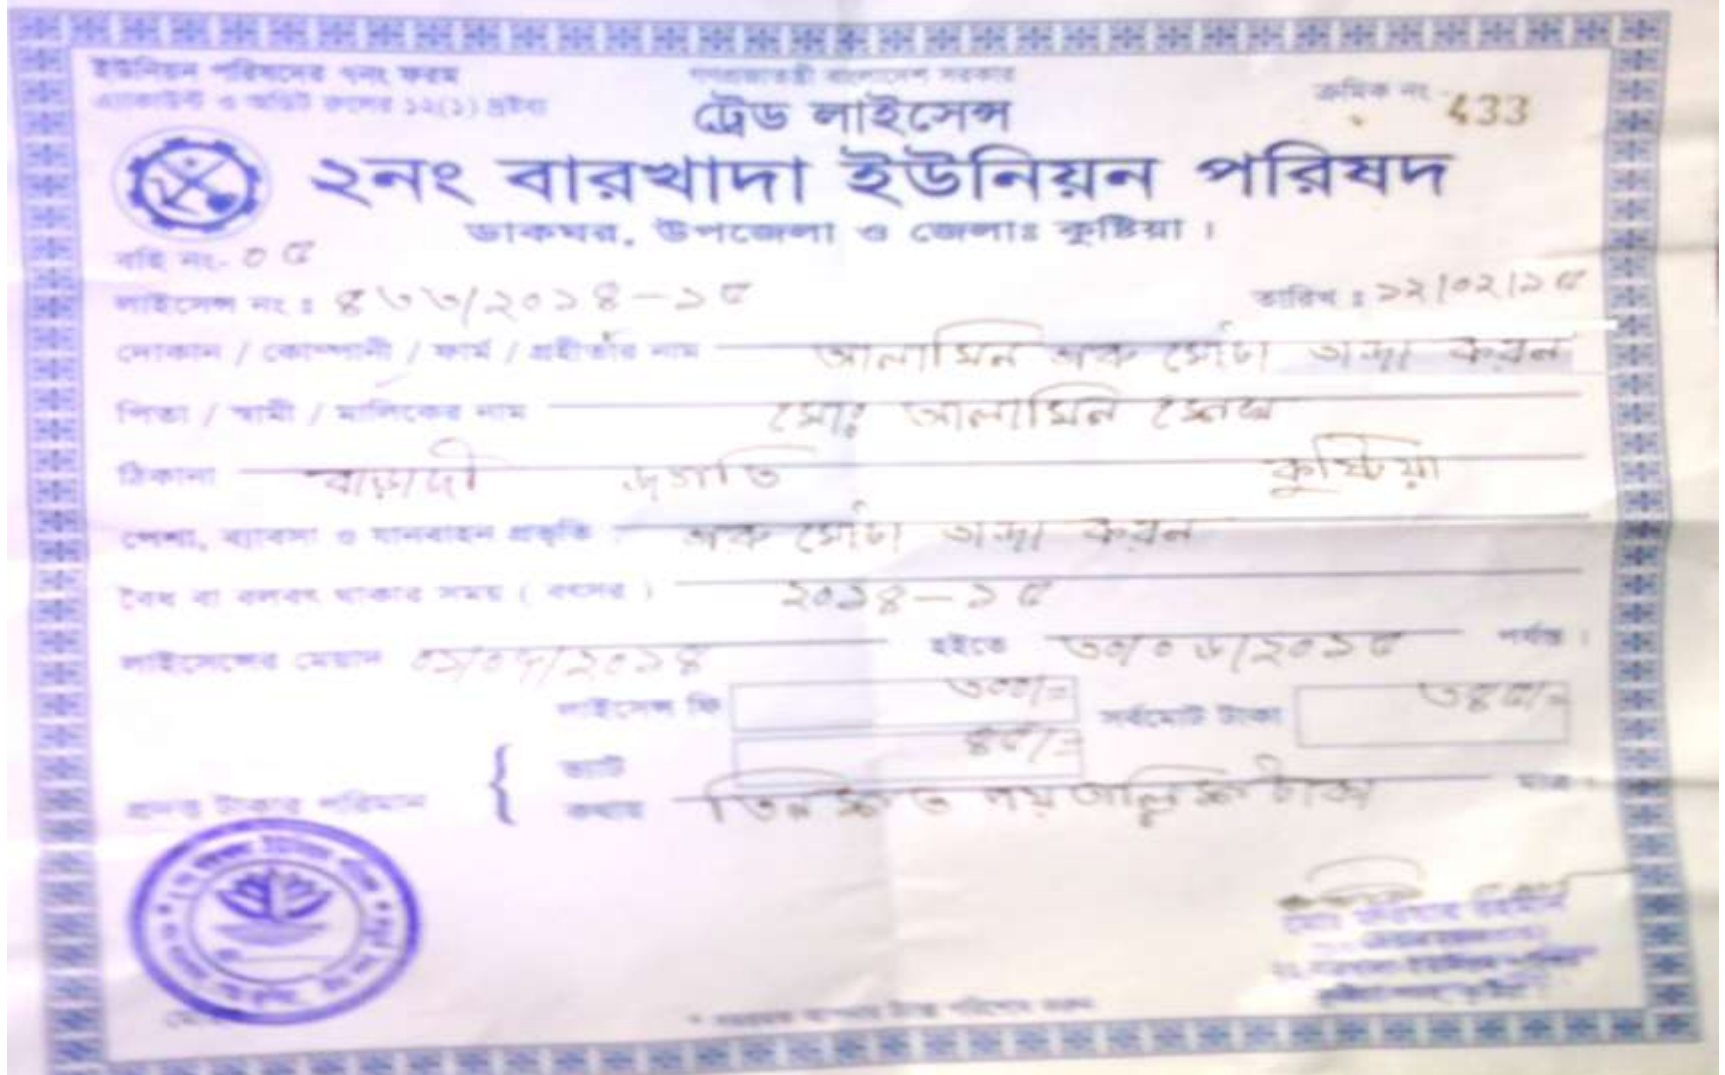 ইউনিয়ন পরিষদের ৭নং ফরম
এ্যাকাউন্ট ও অডিট রুলের ১২(১) দ্রষ্টব্য
গণপ্রজাতন্ত্রী বাংলাদেশ সরকার
ট্রেড লাইসেন্স
ক্রমিক নং - 433
২নং বারখাদা ইউনিয়ন পরিষদ
ডাকঘর, উপজেলা ও জেলাঃ কুষ্টিয়া ।
বহি নং- ০৫
লাইসেন্স নং ঃ ৪৩৩/২০১৪-১৫ তারিখ ঃ ১২/০২/১৫
দোকান / কোম্পানী / ফার্ম / গ্রহীতার নাম আলামিন এক মোটা তাজা করন
পিতা / স্বামী / মালিকের নাম মোঃ আলামিন শেখ
ঠিকানা বাড়াদী জগতি কুষ্টিয়া
পেশা, ব্যাবসা ও যানবাহন প্রকৃতি : এক মোটা তাজা করন
বৈধ বা বলবৎ থাকার সময় ( বৎসর ) ২০১৪-১৫
লাইসেন্সের মেয়াদ ০১/০৭/২০১৪ হইতে ৩০/০৬/২০১৫ পর্যন্ত ।
লাইসেন্স ফি ৩০০/= সর্বমোট টাকা ৩৪৫/=
ভ্যাট ৪৫/=
প্রদত্ত টাকার পরিমান { কথায় তিন শত পয়তাল্লিশ টাকা মাত্র ।